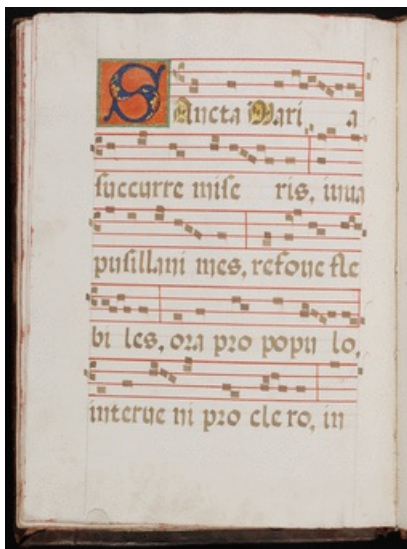 Sancta Mari a
succurre mise ris, iuua
pusillani mes, refoue fle
bi les, ora pro popu lo,
interue ni pro cle ro, in